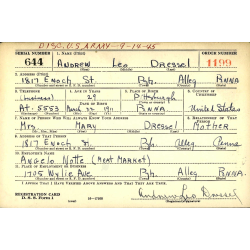 DISC. U.S. ARMY - 9-14-45
SERIAL NUMBER 1. NAME (Print) ORDER NUMBER
644 ANDREW LEO DRESSEL 1199
2. ADDRESS (Print)
1817 ENOCH St. Pgh. Alleg PENNA
3. TELEPHONE 4. AGE IN YEARS 5. PLACE OF BIRTH 6. COUNTRY OF CITIZENSHIP
(business) 29 Pittsburgh
DATE OF BIRTH
At. 5553 March 22 1911 PENNA. United States
7. NAME OF PERSON WHO WILL ALWAYS KNOW YOUR ADDRESS 8. RELATIONSHIP OF THAT PERSON
Mrs. MARY DRESSEL MOTHER
9. ADDRESS OF THAT PERSON
1817 ENOCH St. Pgh. Alleg Penna
10. EMPLOYER'S NAME
ANGELO NOTTE (MEAT MARKET)
11. PLACE OF EMPLOYMENT OR BUSINESS
1705 WYLIE AVE Pgh. Alleg. PENNA.
I AFFIRM THAT I HAVE VERIFIED ABOVE ANSWERS AND THAT THEY ARE TRUE.
REGISTRATION CARD
D. S. S. Form 1
Andrew Leo Dressel